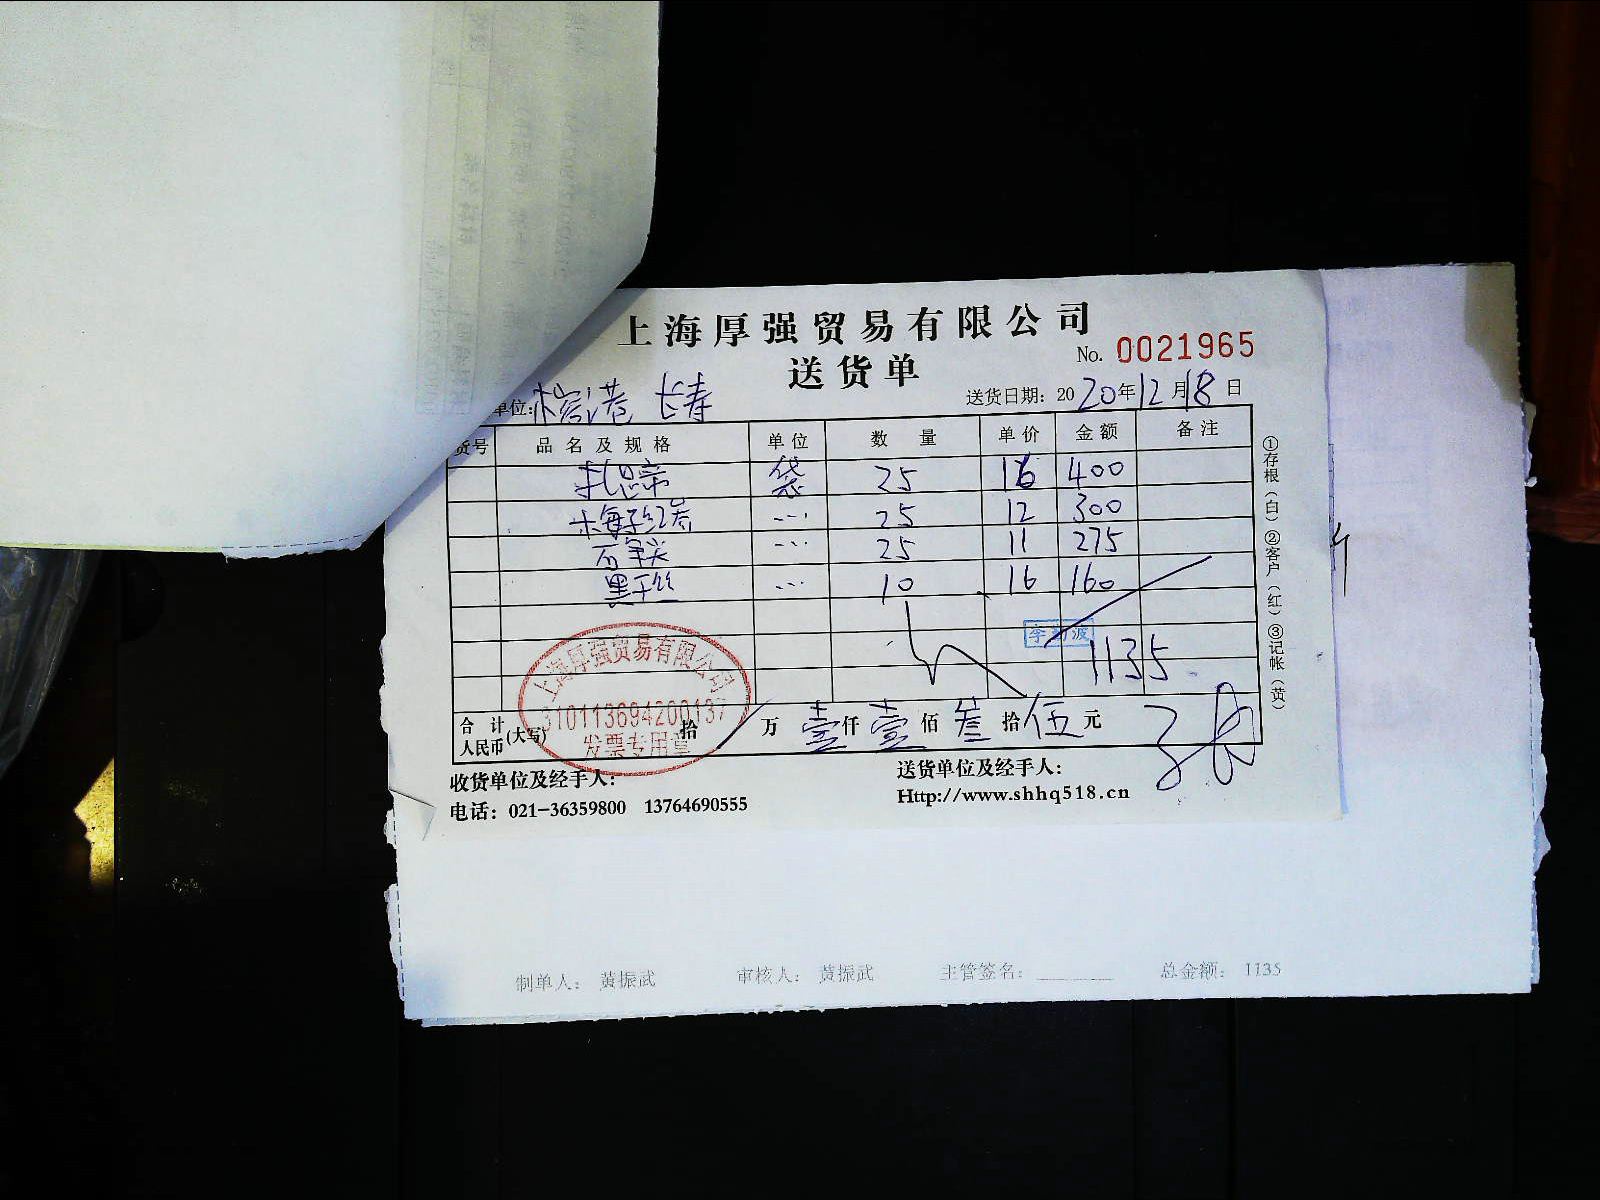 上海厚强贸易有限公司
送货单
No. 0021965
单位: 港 长寿
送货日期: 2020年12月18日
货号 品名及规格 单位 数量 单价 金额 备注
袋 25 16 400
25 12 300
25 11 275
黑干丝 10 16 160
李 波
1135
上海厚强贸易有限公司
310113694200137
发票专用章
合计人民币(大写) 拾 万 壹仟 壹佰 叁拾 伍元
收货单位及经手人:
送货单位及经手人:
电话: 021-36359800 13764690555
Http://www.shhq518.cn
①存根(白)②客户(红)③记帐(黄)
制单人: 黄振武 审核人: 黄振武 主管签名: 总金额: 1135